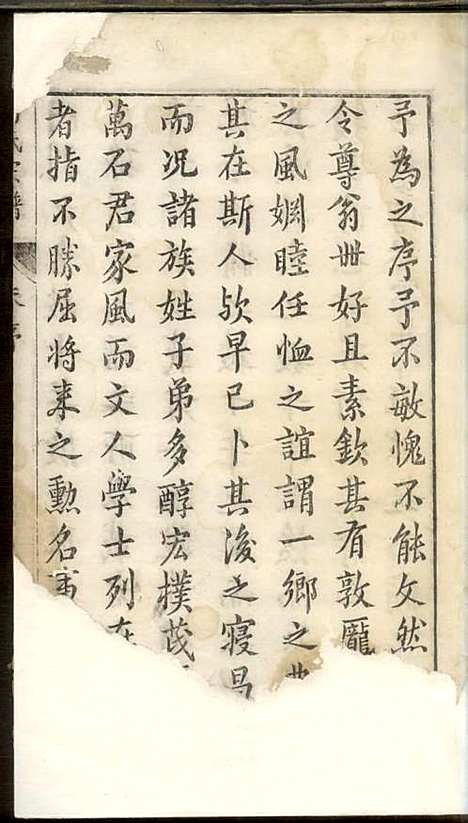 予為之序予不敏愧不能文然
令尊翁世好且素欽其有敦龐
之風婣睦任恤之誼謂一鄉之
其在斯人欤早已卜其後之寖昌
而况諸族姓子弟多醇宏樸茂
萬石君家風而文人學士列在
者指不勝屈将来之勳名
氏宗譜
序